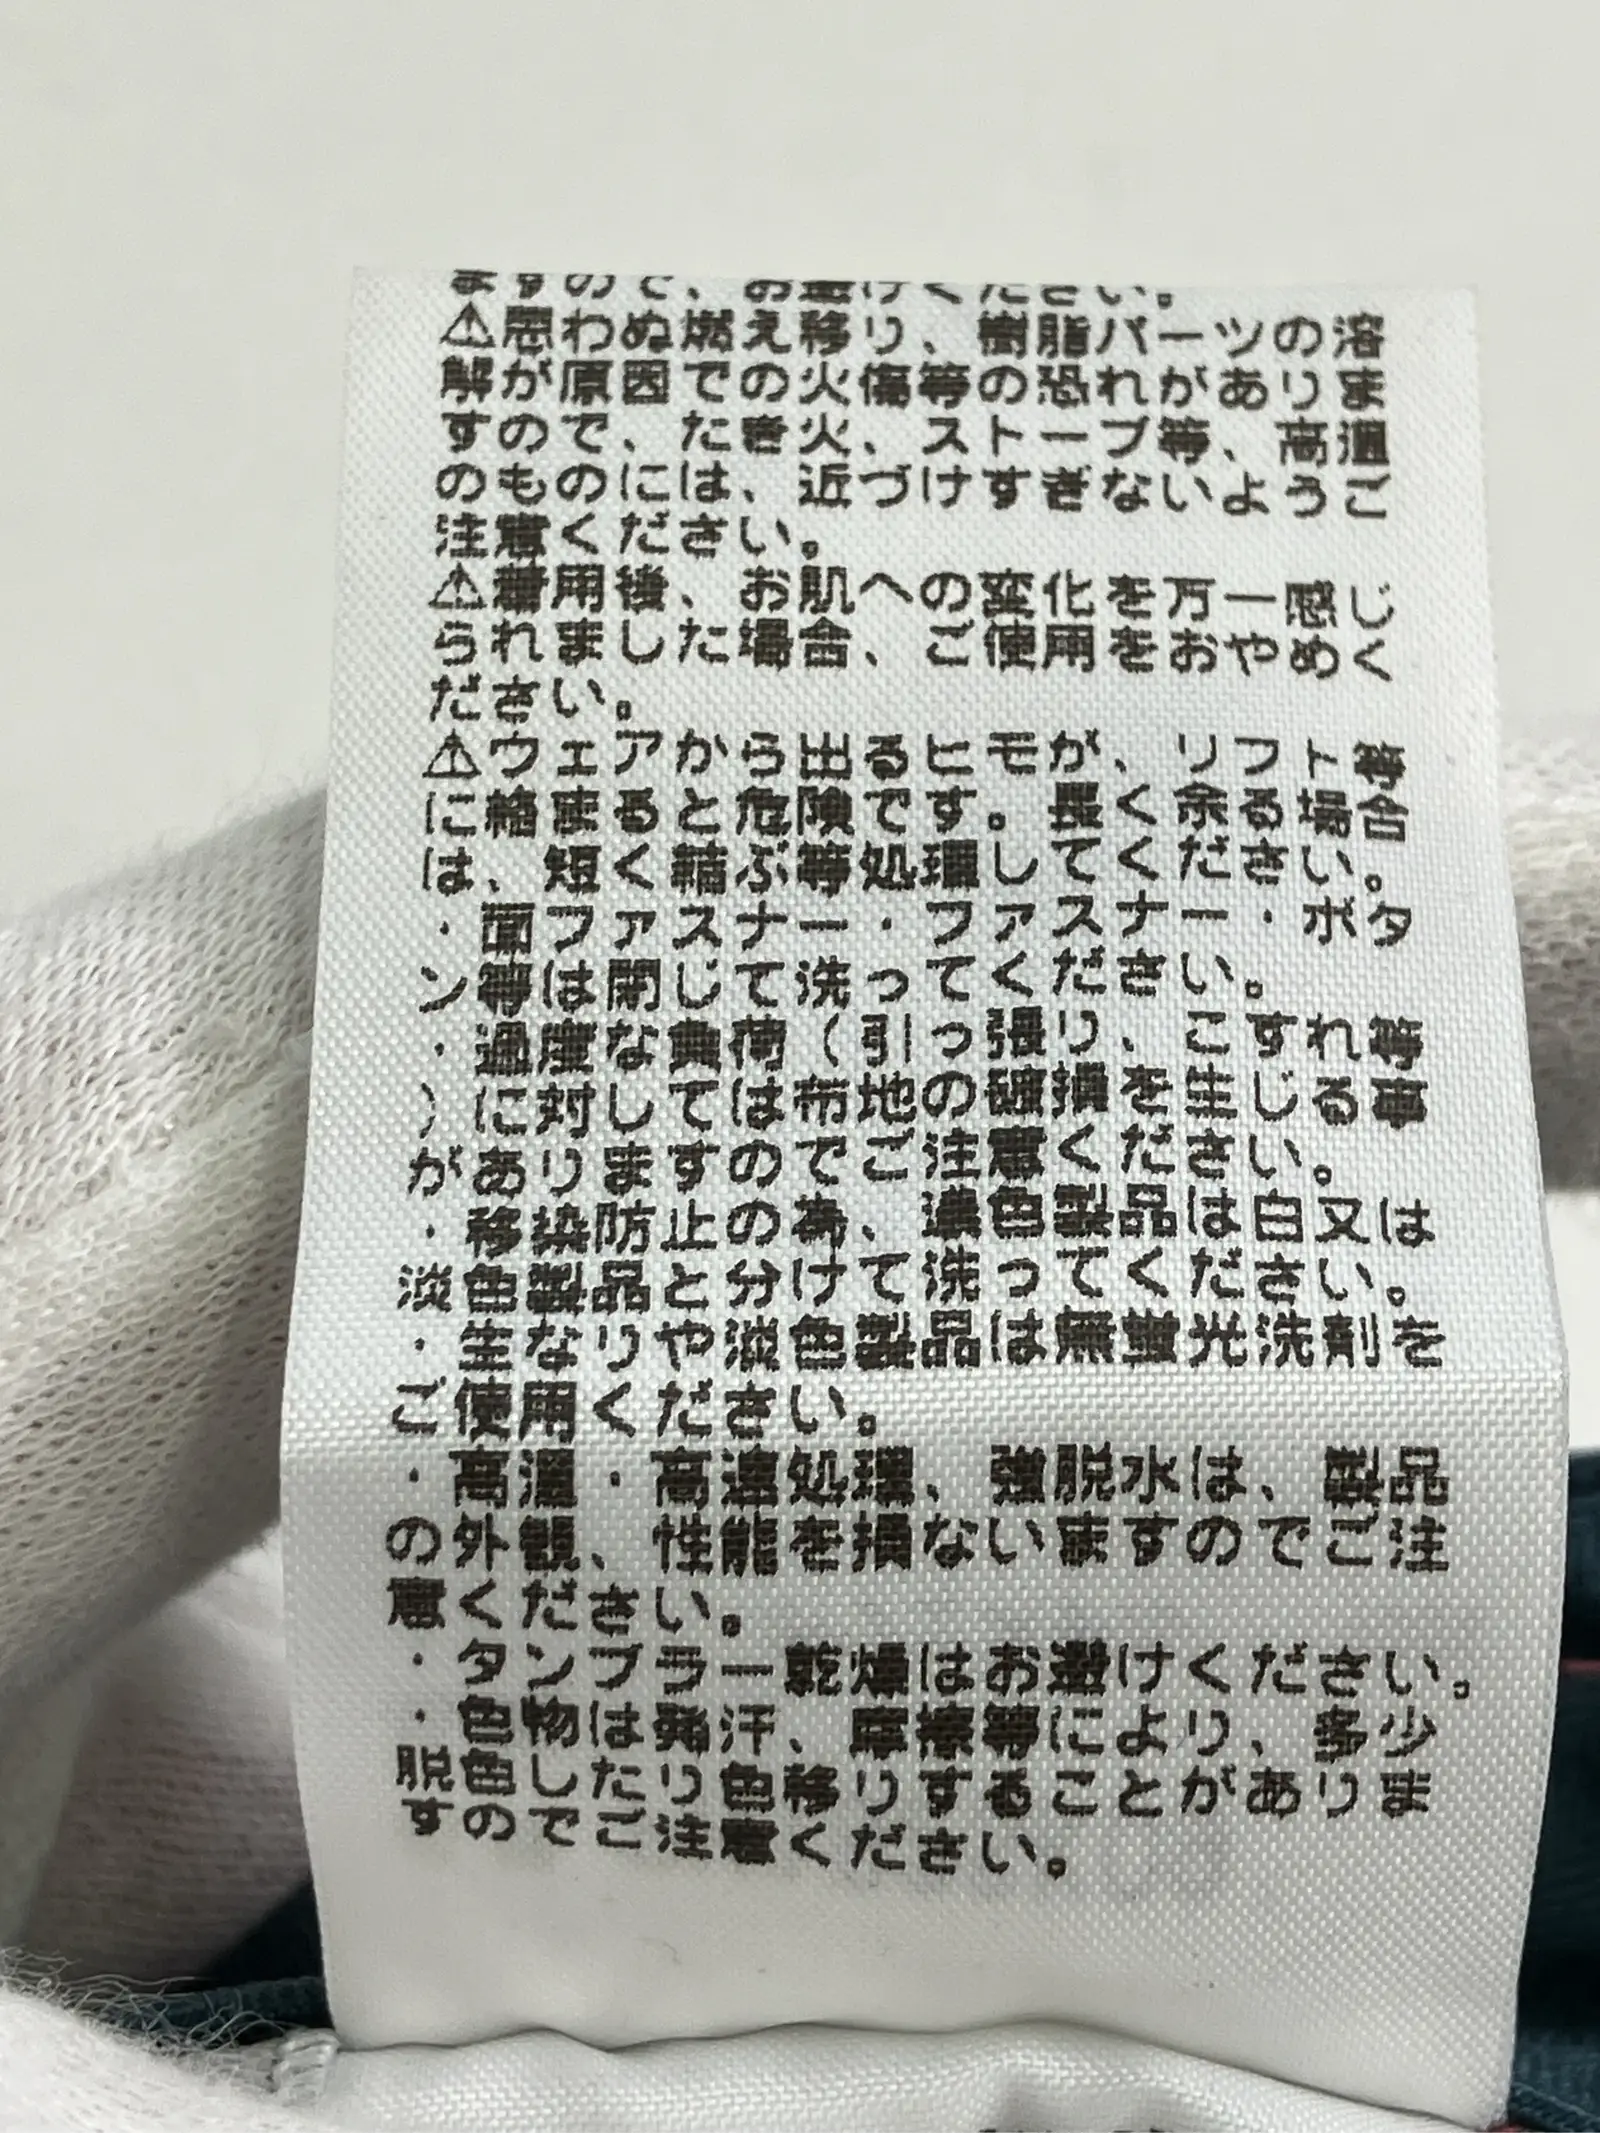 ますので、お避けください。
⚠思わぬ燃え移り、樹脂パーツの溶
解が原因での火傷等の恐れがありま
すので、たき火、ストーブ等、高温
のものには、近づけすぎないようご
注意ください。
⚠着用後、お肌への変化を万一感じ
られました場合、ご使用をおやめく
ださい。
⚠ウェアから出るヒモが、リフト等
に絡まると危険です。長く余る場合
は、短く結ぶ等処理してください。
・面ファスナー・ファスナー・ボタ
ン等は閉じて洗ってください。
・過度な負荷（引っ張り、こすれ等
）に対しては布地の破損を生じる事
がありますのでご注意ください。
・移染防止の為、濃色製品は白又は
淡色製品と分けて洗ってください。
・生なりや淡色製品は無蛍光洗剤を
ご使用ください。
・高温・高速処理、強脱水は、製品
の外観、性能を損ないますのでご注
意ください。
・タンブラー乾燥はお避けください。
・色物は発汗、摩擦等により、多少
脱色したり色移りすることがありま
すのでご注意ください。